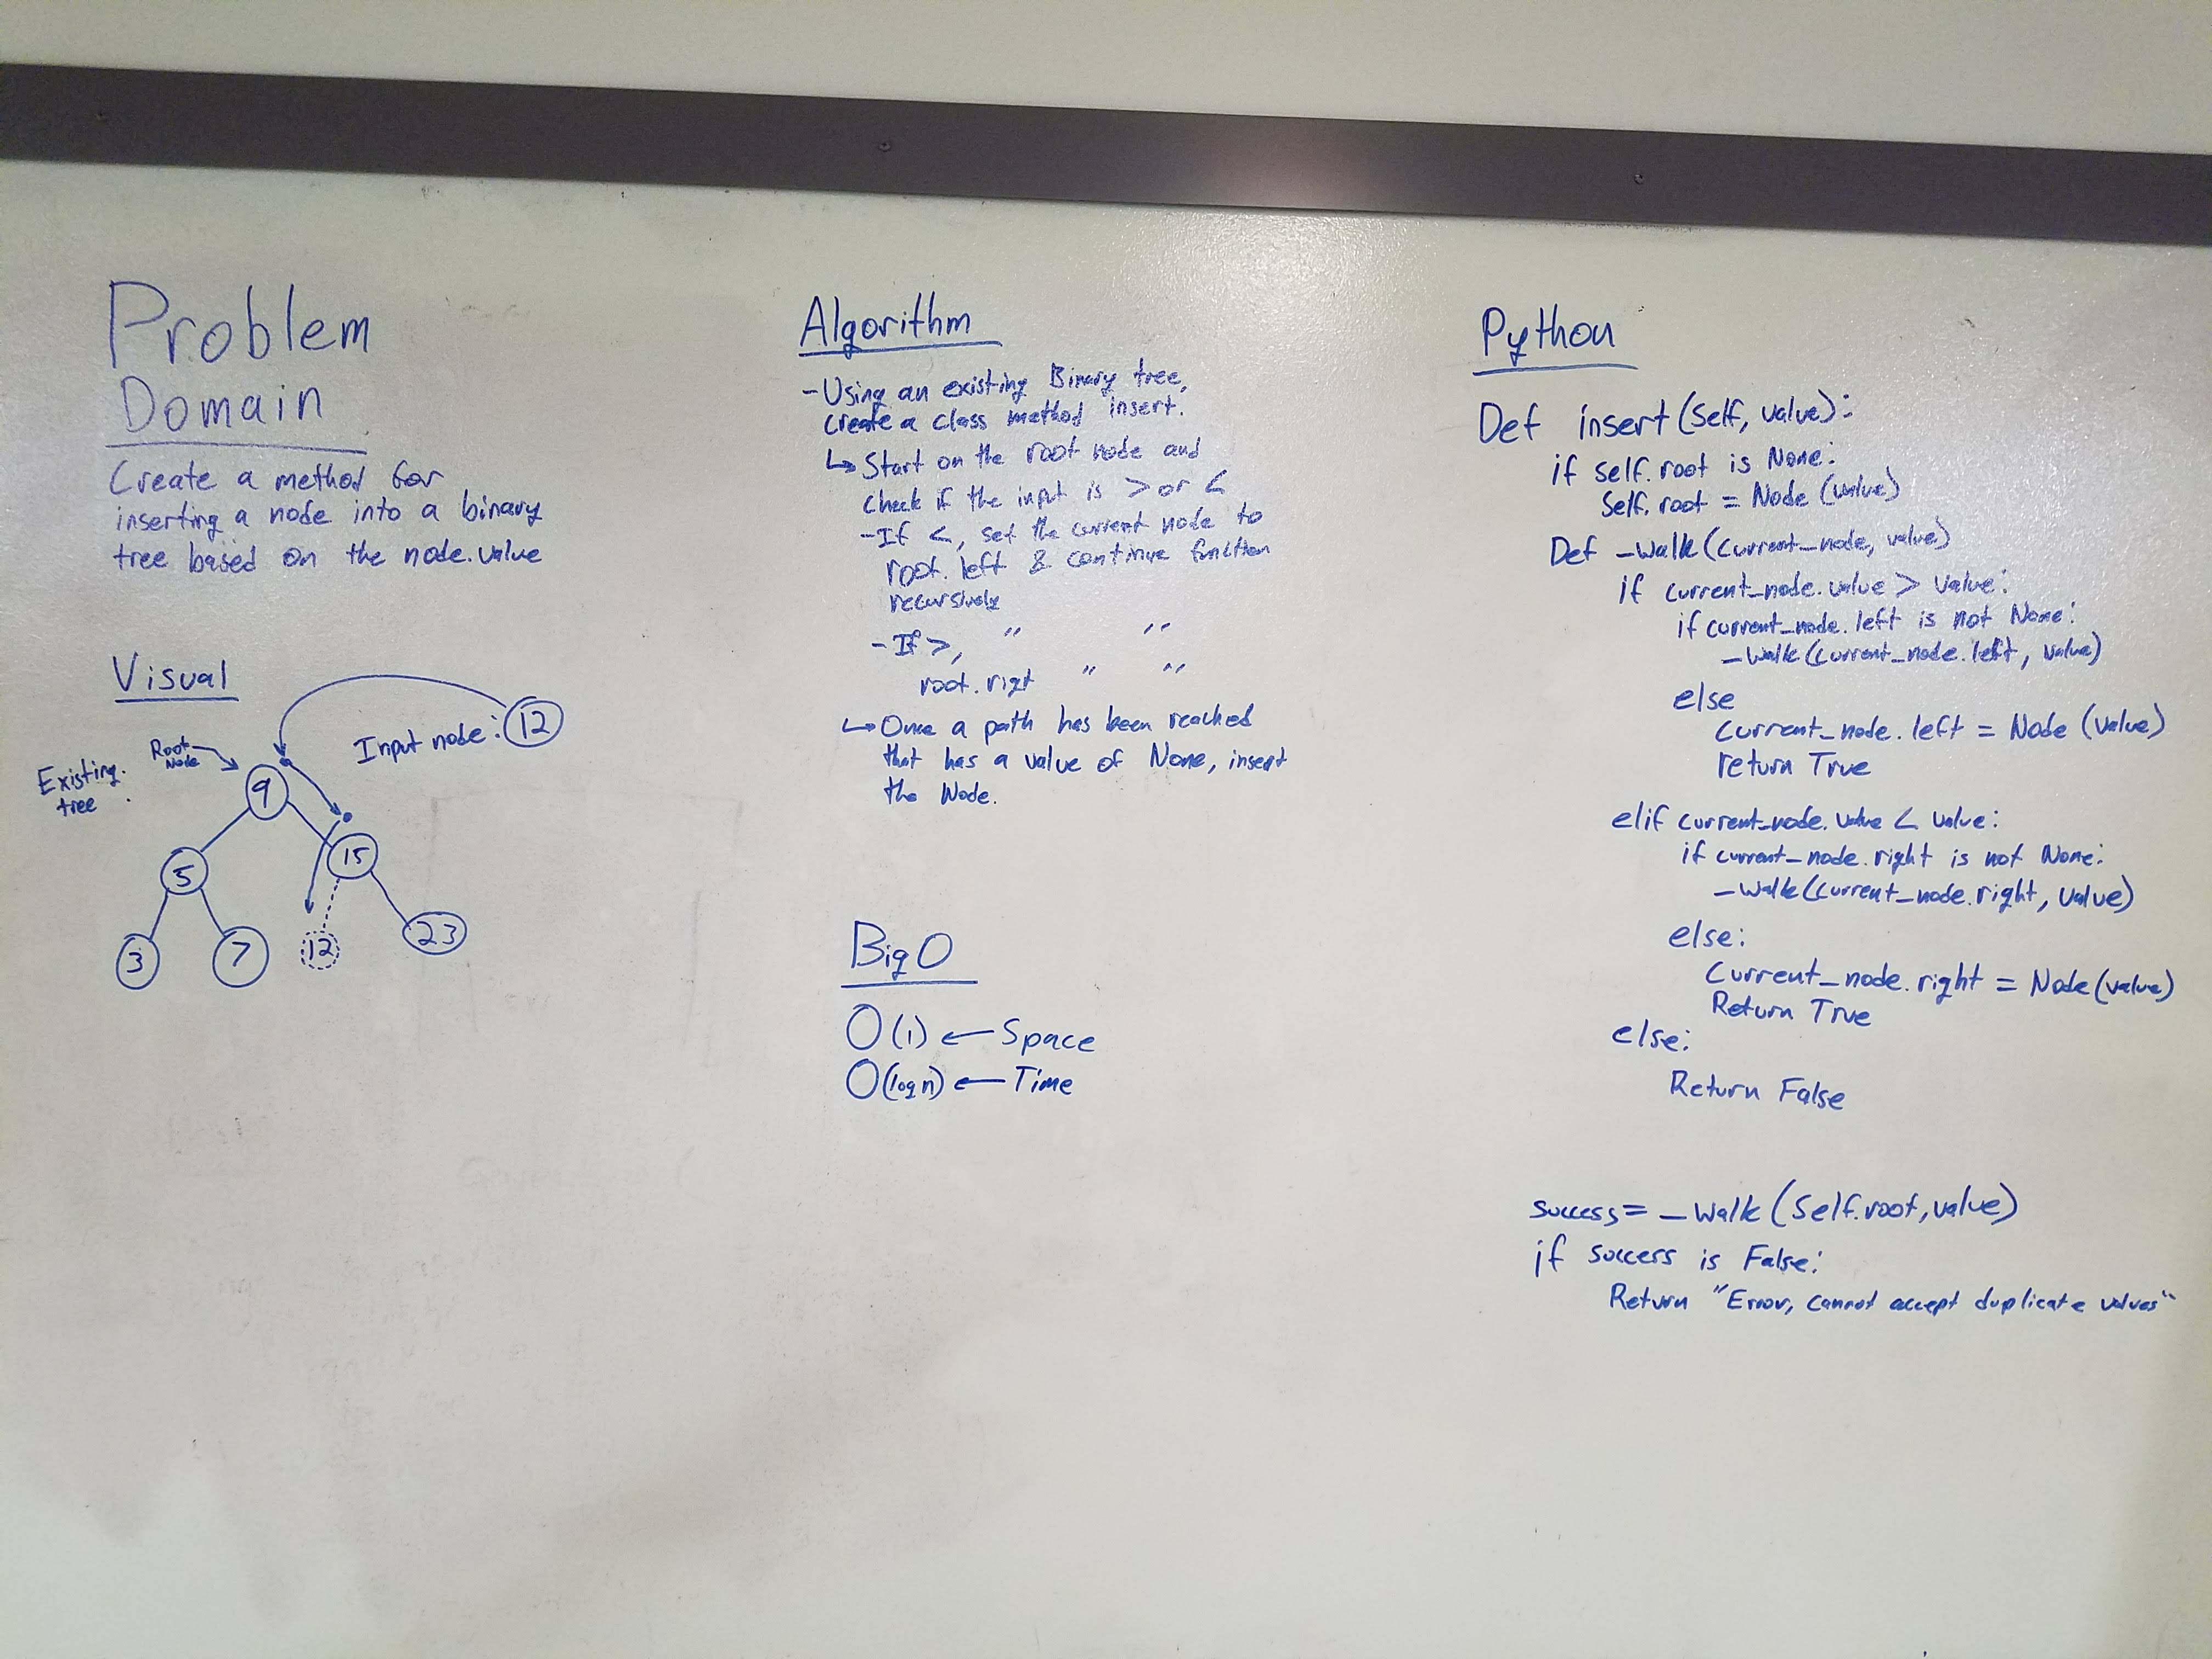 Problem
Domain
Create a method for
inserting a node into a binary
tree based on the node.value
Visual
Input node: 12
Root
Node
Existing
tree
9
5
15
3
7
12
23
Algorithm
-Using an existing Binary tree,
create a class method insert.
↳ Start on the root node and
check if the input is > or <
-If <, set the current node to
root.left & continue function
recursively
-If >, " "
root.rigt " "
↳ Once a path has been reached
that has a value of None, insert
the Node.
Big O
O(1) ← Space
O(log n) ← Time
Python
Def insert(self, value):
if self.root is None:
self.root = Node(value)
Def _walk(current_node, value)
if current_node.value > value:
if current_node.left is not None:
_walk(current_node.left, value)
else
current_node.left = Node(value)
return True
elif current_node.value < value:
if current_node.right is not None:
_walk(current_node.right, value)
else:
current_node.right = Node(value)
Return True
else:
Return False
success = _walk(self.root, value)
if success is False:
Return "Error, cannot accept duplicate values"